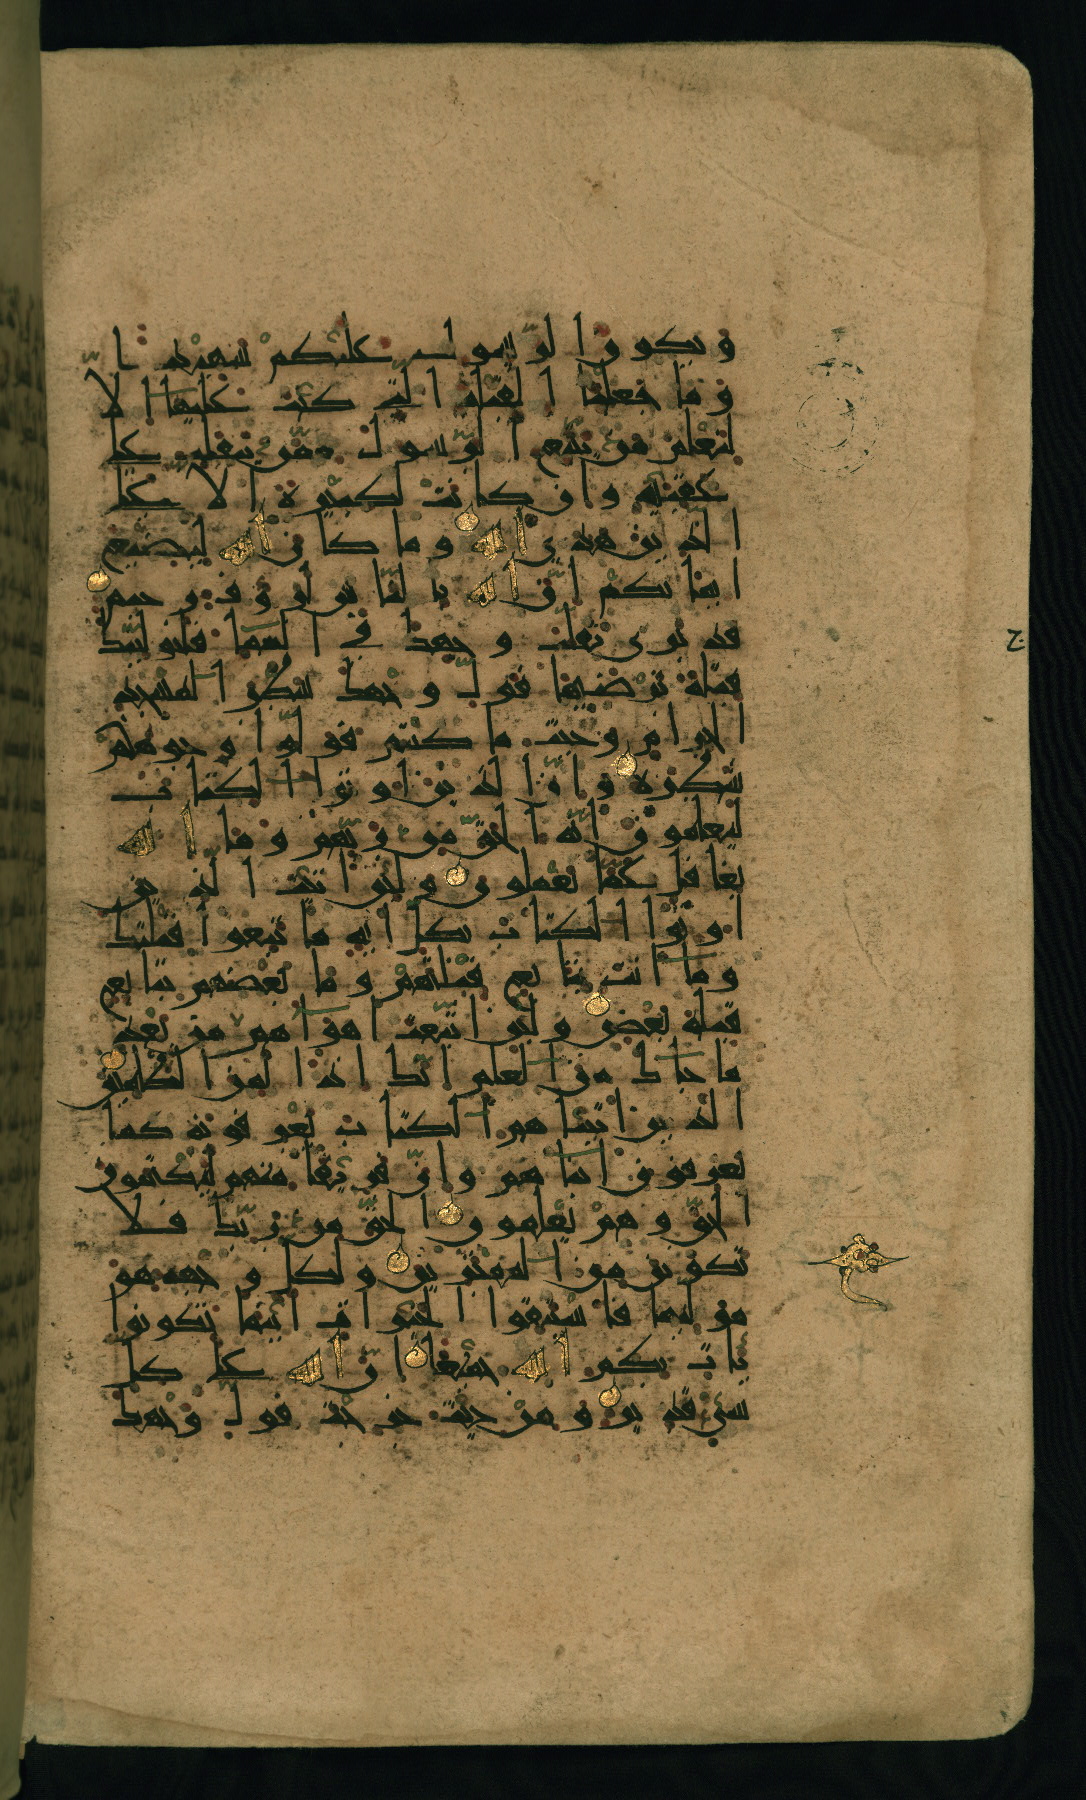 ويكون الرسول عليكم شهيدا
وما جعلنا القبلة التي كنت عليها الا
لنعلم من يتبع الرسول ممن ينقلب على
عقبيه وان كانت لكبيرة الا على
الذين هدى الله وما كان الله ليضيع
ايمانكم ان الله بالناس لروف رحيم
قد نرى تقلب وجهك في السما فلنولينك
قبلة ترضيها فول وجهك شطر المسجد
الحرام وحيث ما كنتم فولوا وجوهكم
شطره وان الذين اوتوا الكتاب
ليعلمون انه الحق من ربهم وما الله
بغافل عما يعملون ولئن اتيت الذين
اوتوا الكتاب بكل اية ما تبعوا قبلتك
وما انت بتابع قبلتهم وما بعضهم بتابع
قبلة بعض ولئن اتبعت اهواهم من بعد
ما جاك من العلم انك اذا لمن الظلمين
الذين اتيناهم الكتاب يعرفونه كما
يعرفون ابناهم وان فريقا منهم ليكتمون
الحق وهم يعلمون الحق من ربك فلا
تكونن من الممترين ولكل وجهة هو
موليها فاستبقوا الخيرات اينما تكونوا
يات بكم الله جميعا ان الله على كل
شي قدير ومن حيث خرجت فول وجهك
ج